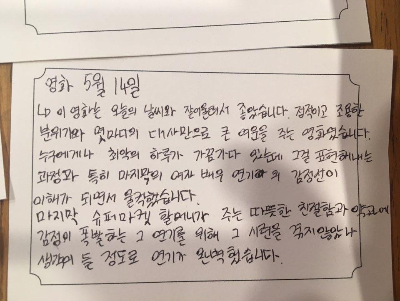 영화 5월 14일
↳ 이 영화는 오늘의 날씨와 잘어울려서 좋았습니다. 정적이고 조용한
분위기와 몇마디의 대사만으로 큰 여운을 주는 영화였습니다.
누구에게나 최악의 하루가 가끔가다 있는데 그걸 표현해내는
과정과 특히 마지막의 여자 배우 연기와 의 감정선이
이해가 되면서 울컥했습니다.
마지막 슈퍼마켓 할머니가 주는 따뜻한 친절함과
감정이 폭발하는 그 연기를 위해 그 시련을 겪지않았나
생각이 들 정도로 연기가 완벽했습니다.